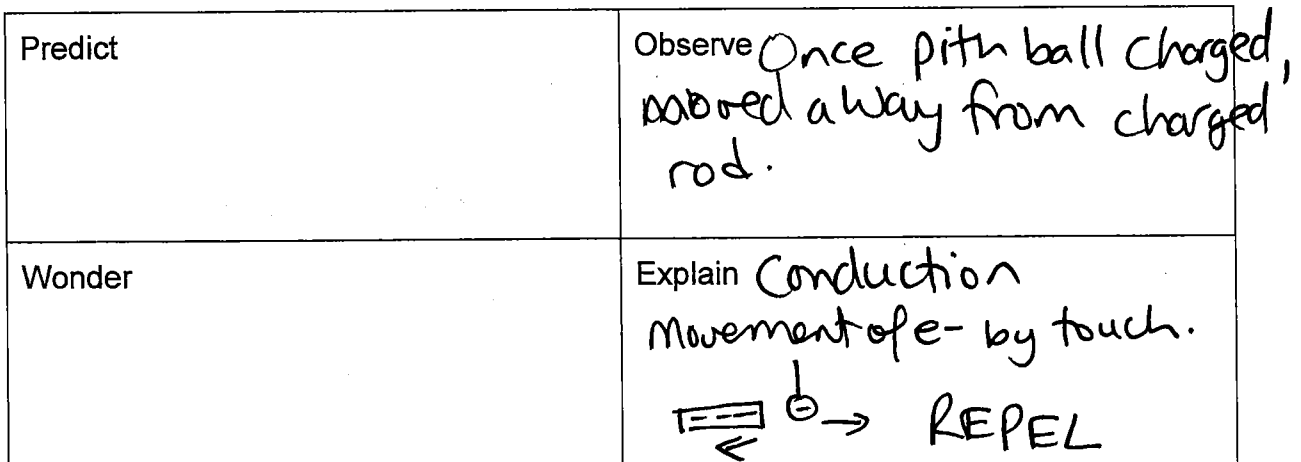 Predict
Observe Once pith ball charged,
moved away from charged
rod.
Wonder
Explain Conduction
Movement of e- by touch.
REPEL